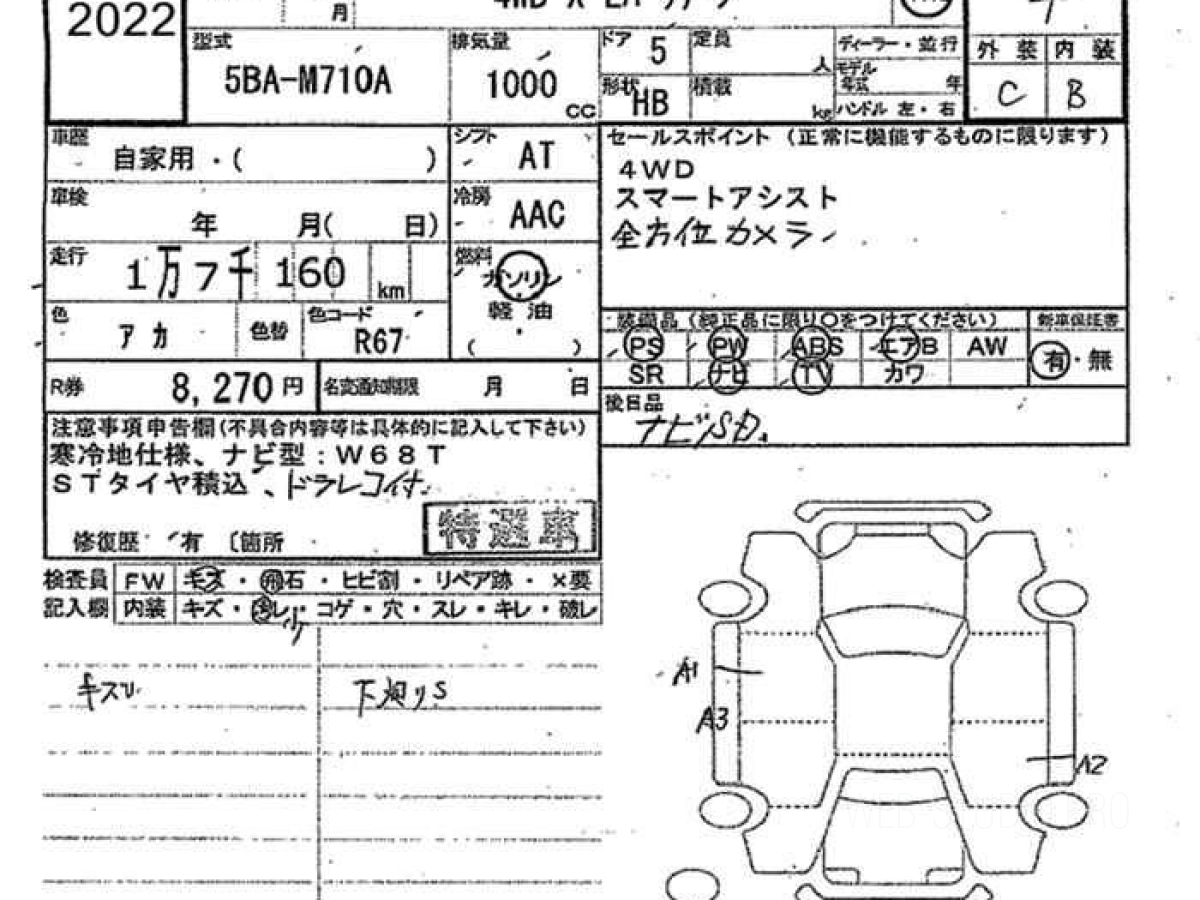 2022
月
型式
5BA-M710A
排気量
1000
cc
ドア 5
定員
人
形状 HB
積載
kg
ディーラー・並行
モデル年式 年
ハンドル 左・右
外装 内装
C B
車歴
自家用・( )
シフト
AT
セールスポイント (正常に機能するものに限ります)
4WD
スマートアシスト
全方位カメラ
車検
年 月( 日)
冷房
AAC
走行
1万7千160 km
燃料
ガソリン
軽油
( )
色
アカ
色替
色コード
R67
装備品 (純正品に限り〇をつけてください)
新車保証書
PS PW ABS エアB AW
有・無
SR ナビ TV カワ
R券 8,270円
名変通知期限 月 日
後日品
ナビSD.
注意事項申告欄(不具合内容等は具体的に記入して下さい)
寒冷地仕様、ナビ型:W68T
STタイヤ積込、ドラレコ付
特選車
修復歴 有 〔箇所
検査員 FW キズ・飛石・ヒビ割・リペア跡・×要
記入欄 内装 キズ・汚レ・コゲ・穴・スレ・キレ・破レ
少
キズU
下廻りS
A1
A3
A2